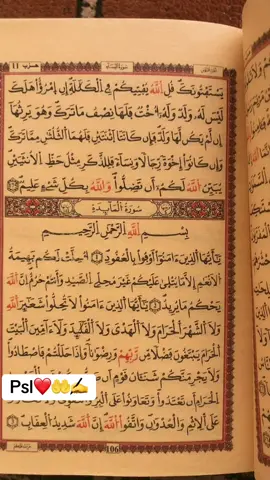 يَسْتَفْتُونَكَ قُلِ اللَّهُ يُفْتِيكُمْ فِي الْكَلَالَةِ إِنِ امْرُؤٌا هَلَكَ
لَيْسَ لَهُ وَلَدٌ وَلَهُ أُخْتٌ فَلَهَا نِصْفُ مَا تَرَكَ وَهُوَ يَرِثُهَا
إِن لَّمْ يَكُن لَّهَا وَلَدٌ فَإِن كَانَتَا اثْنَتَيْنِ فَلَهُمَا الثُّلُثَانِ مِمَّا تَرَكَ
وَإِن كَانُوا إِخْوَةً رِّجَالًا وَنِسَاءً فَلِلذَّكَرِ مِثْلُ حَظِّ الْأُنثَيَيْنِ
يُبَيِّنُ اللَّهُ لَكُمْ أَن تَضِلُّوا وَاللَّهُ بِكُلِّ شَيْءٍ عَلِيمٌ
سُورَةُ الْمَائِدَةِ
بِسْمِ اللَّهِ الرَّحْمَٰنِ الرَّحِيمِ
يَا أَيُّهَا الَّذِينَ آمَنُوا أَوْفُوا بِالْعُقُودِ أُحِلَّتْ لَكُم بَهِيمَةُ
الْأَنْعَامِ إِلَّا مَا يُتْلَىٰ عَلَيْكُمْ غَيْرَ مُحِلِّي الصَّيْدِ وَأَنتُمْ حُرُمٌ إِنَّ اللَّهَ
يَحْكُمُ مَا يُرِيدُ يَا أَيُّهَا الَّذِينَ آمَنُوا لَا تُحِلُّوا شَعَائِرَ اللَّهِ
وَلَا الشَّهْرَ الْحَرَامَ وَلَا الْهَدْيَ وَلَا الْقَلَائِدَ وَلَا آمِّينَ الْبَيْتَ
الْحَرَامَ يَبْتَغُونَ فَضْلًا مِّن رَّبِّهِمْ وَرِضْوَانًا وَإِذَا حَلَلْتُمْ فَاصْطَادُوا
وَلَا يَجْرِمَنَّكُمْ شَنَآنُ قَوْمٍ أَن
الْحَرَامِ أَن تَعْتَدُوا وَتَعَاوَنُوا عَلَى الْبِرِّ وَالتَّقْوَىٰ
عَلَى الْإِثْمِ وَالْعُدْوَانِ وَاتَّقُوا اللَّهَ إِنَّ اللَّهَ شَدِيدُ الْعِقَابِ
Psl❤️🤲✍️
106